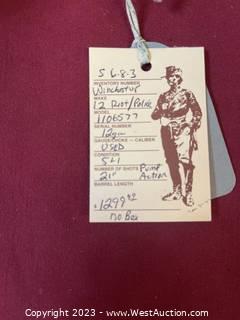 S 6-8-3
INVENTORY NUMBER
Winchester
MAKE
12 Riot/Police
MODEL
1106577
SERIAL NUMBER
12ga
GAUGE/CHOKE — CALIBER
USED
CONDITION
5+1 Pump
NUMBER OF SHOTS
21" Action
BARREL LENGTH
$1299.00
no Box
Copyright © 2023 - www.WestAuction.com